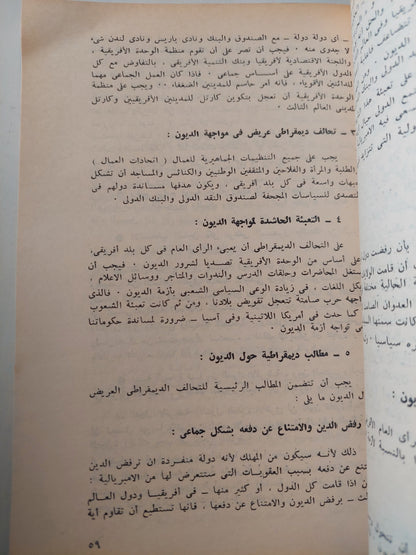 ــ أى دولة دولة ــ مع الصندوق والبنك ونادى باريس ونادى لندن شىء
لا جدوى منه ٠ فيجب أن نصر على أن تقوم منظمة الوحدة الأفريقية ،
واللجنة الاقتصادية لأفريقيا وبنك التنمية الأفريقى ، بالتفاوض مع كل
الدول الأفريقية على أســاس جماعى ٠ فاذا كان العمل الجماعى مهما
للدائنين الأقوياء ، فانه أمر حاسم للمدينين الضعفاء ٠ ويجب على منظمة
الوحدة الأفريقية أن تعجل بتكوين كارتل للمدينين الأفريقيين وكارتل
لمدينى العالم الثالث ٠
٣ ــ تحالف ديمقراطى عريض فى مواجهة الديون :
يجب على جميع التنظيمات الجماهيرية للعمال ( اتحادات العمال )
والطلبة والمرأة والفلاحين والمثقفين الوطنيين والكنائس والمساجد أن تشكل
جبهات واسعة فى كل بلد أفريقى ، ويكون هدفها مســاندة دولهم فى
التصدى للسياسات المجحفة لصندوق النقد الدولى والبنك الدولى ٠
٤ ــ التعبئة الحاشدة لمواجهة الديون :
على التحالف الديمقراطى أن يعبىء الرأى العام فى كل بلد أفريقى،
على أساس من الوحدة الأفريقية تصديا لشرور الديون ٠ فيجب أن
يستغل المحاضرات وحلقات الدرس والندوات والمتاجر ووسائل الاعلام ،
بكل اللغات ، فى زيادة الوعى السياسى الشعبى بأزمة الديون ٠ فالذى
نواجهه حرب صامتة تتعجل تقويض بلادنا ، ومن ثم كانت تعبئة الشعوب
كما حدث فى أمريكا اللاتينية وفى آسيا ــ ضرورة لمساندة حكوماتنا
فى مواجهة أزمة الديون ٠
٥ ــ مطالب ديمقراطية حول الديون :
يجب أن تتضمن المطالب الرئيسية للتحالف الديمقراطى العريض
حول الديون ما يلى :
رفض الدين والامتناع عن دفعه بشكل جماعى :
ذلك لأنه سيكون من المهلك لأنه دولة منفردة ان ترفض الدين
عن دفعه بسبب العقوبات التى ستتعرض لها من الامبريالية ٠
اذا قامت كل الدول ، أو كثير منها ــ فى أفريقيا ودول العالم
ــ برفض الديون والامتناع عن دفعها ، فانها تستطيع أن تقاوم أية
٥٩